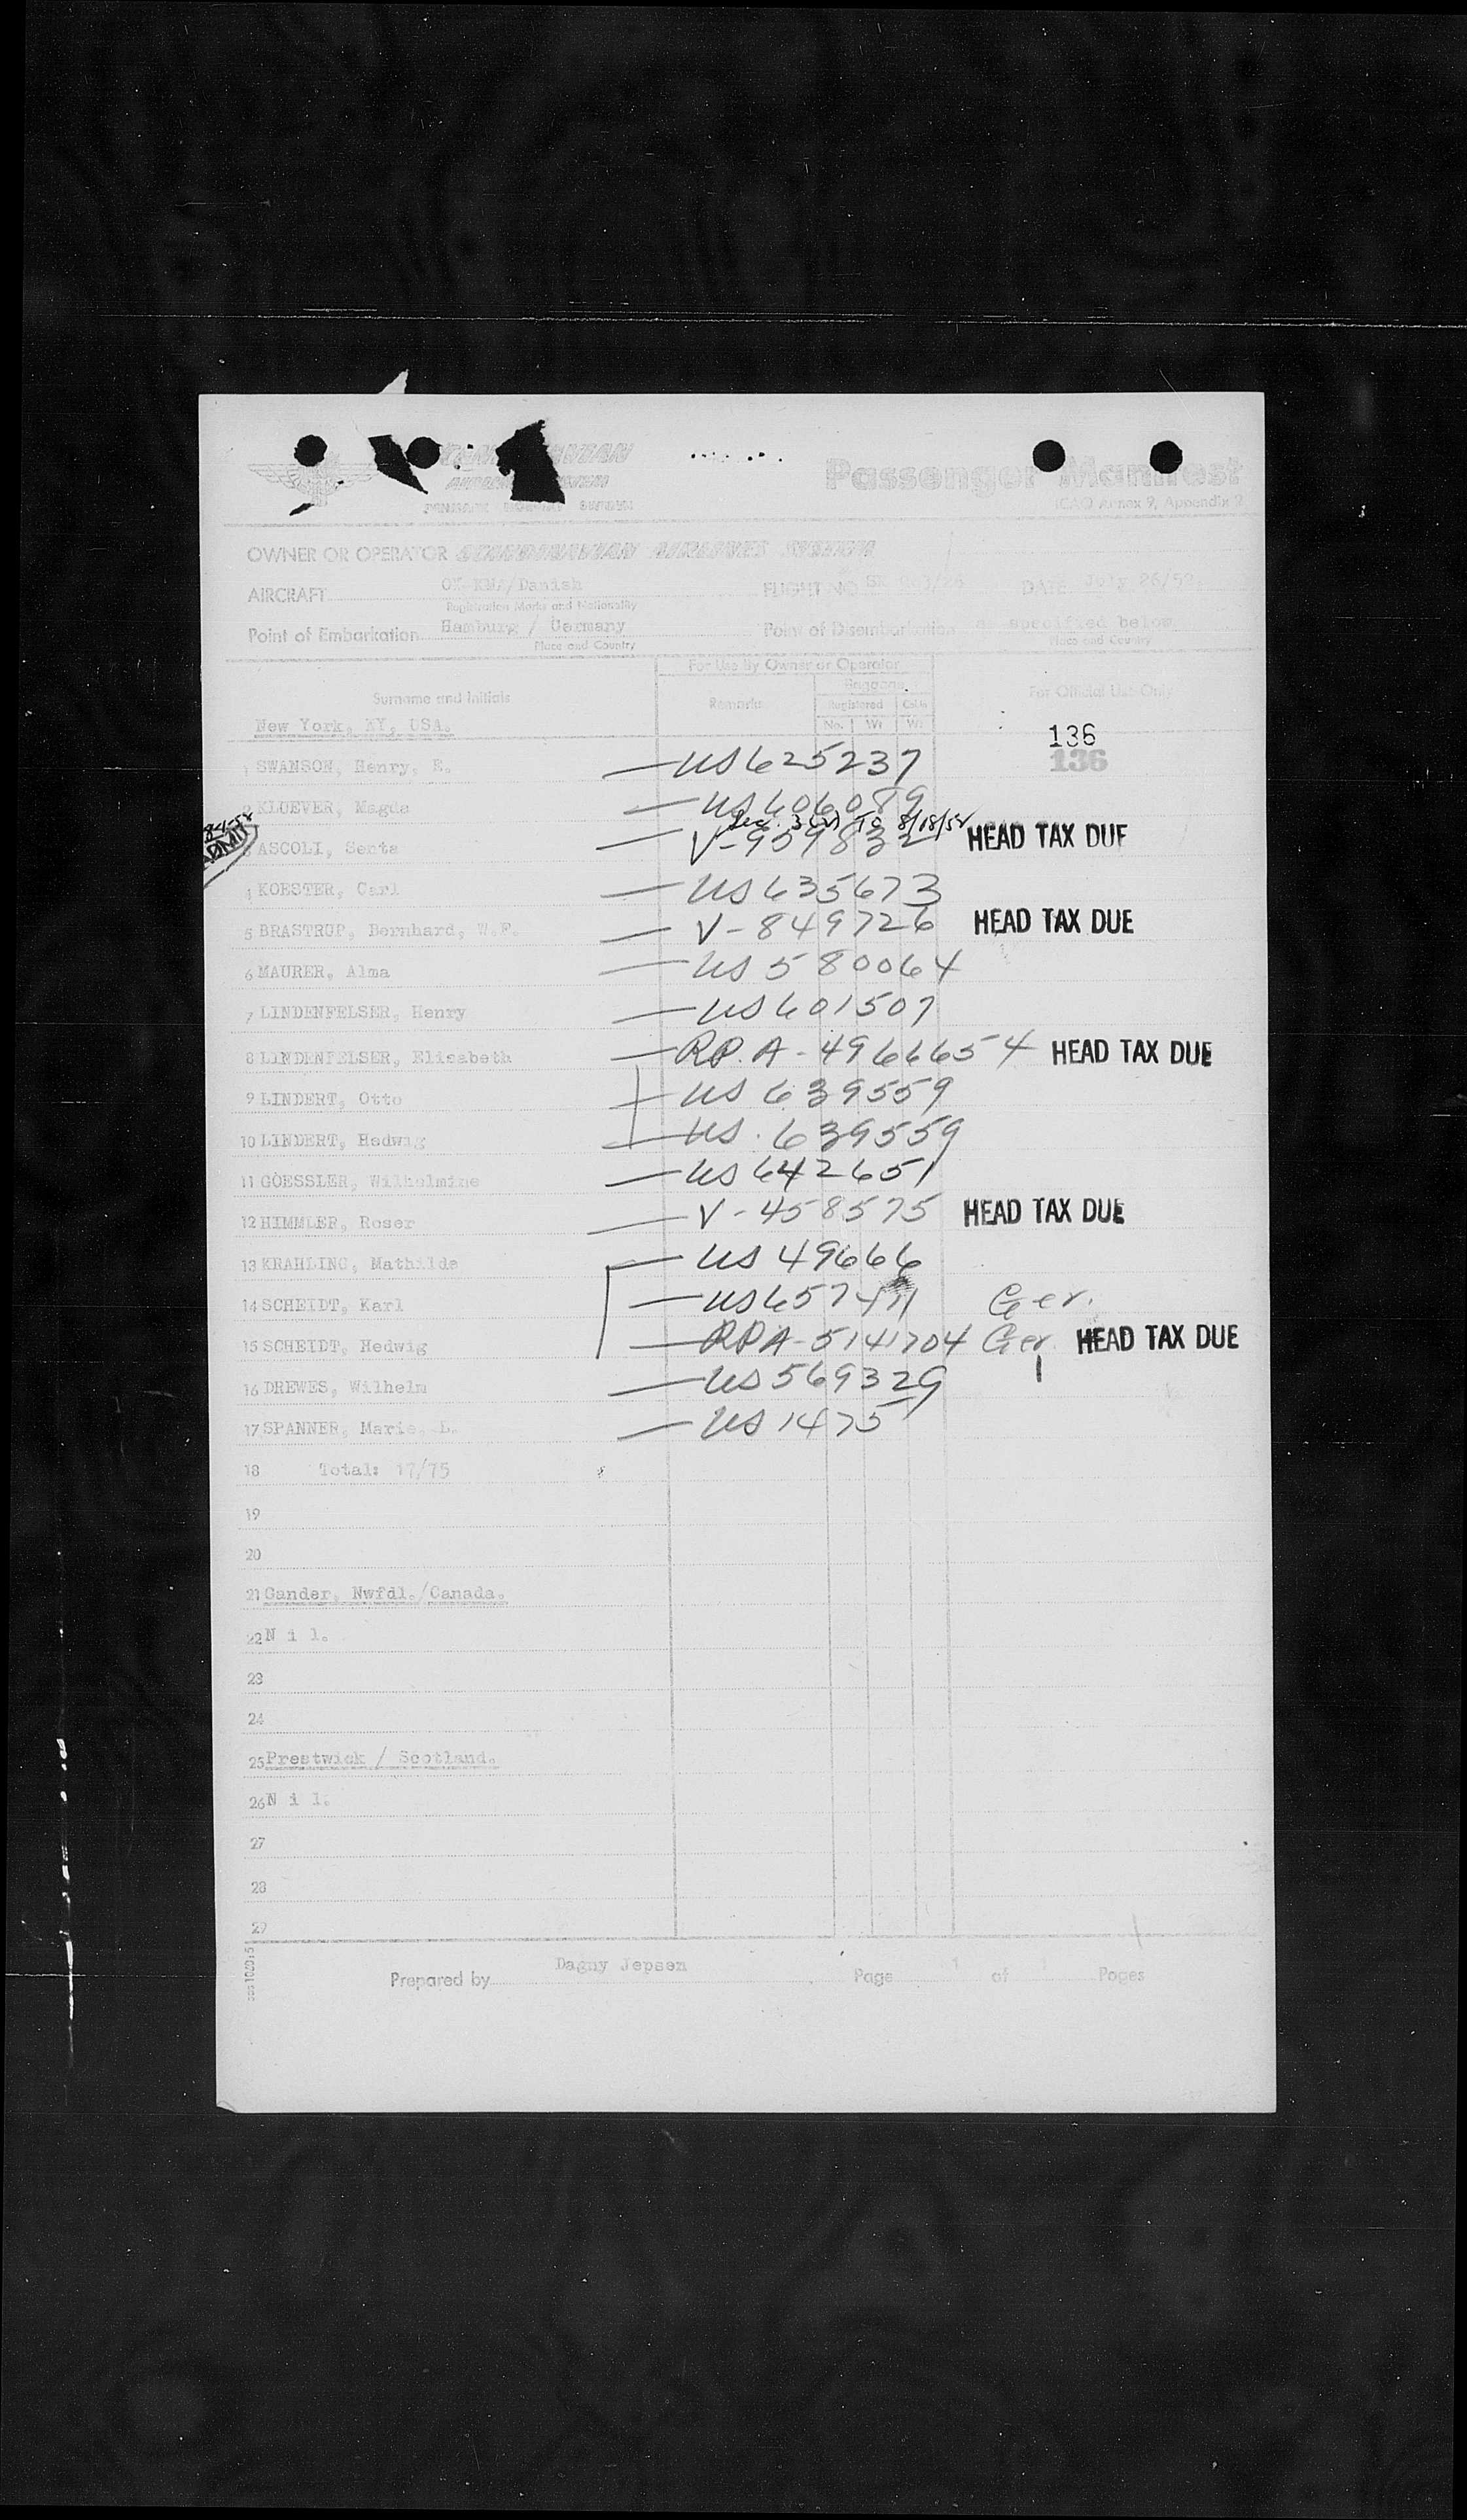 Passenger Manifest
ICAO Annex 9, Appendix 2
OWNER OR OPERATOR SCANDINAVIAN AIRLINES SYSTEM
AIRCRAFT /Danish FLIGHT NO SK DATE July 26/52
Registration Marks and Nationality
Point of Embarkation Hamburg / Germany Point of Disembarkation as specified below
Place and Country Place and Country
For Use By Owner or Operator
Surname and Initials Remarks Baggage For Official Use Only
Registered Cabin
No. Wt Wt
New York, NY, USA.
136
136
1 SWANSON, Henry, E. US 625237
2 KLOEVER, Magda US 606089
Sec. 3(2) To 8/18/52
ADMIT
3 ASCOLI, Senta V-959832 HEAD TAX DUE
4 KOESTER, Carl US 635673
5 BRASTRUP, Bernhard, W.F. V-849726 HEAD TAX DUE
6 MAURER, Alma US 580064
7 LINDENFELSER, Henry US 601507
8 LINDENFELSER, Elisabeth RP.A-4966654 HEAD TAX DUE
9 LINDERT, Otto US 639559
10 LINDERT, Hedwig US. 639559
11 GOESSLER, Wilhelmine US 642651
12 HIMMLER, Roser V-458575 HEAD TAX DUE
13 KRAHLING, Mathilde US 49666
14 SCHEIDT, Karl US 657411 Ger.
15 SCHEIDT, Hedwig RPA-5141704 Ger. HEAD TAX DUE
16 DREWES, Wilhelm US 569329
17 SPANNER, Marie, L. US 1475
18 Total: 17/75
19
20
21 Gander, Nwfdl./Canada.
22 N i l.
23
24
25 Prestwick / Scotland.
26 N i l.
27
28
29
Prepared by Dagny Jepsen Page 1 of 1 Pages